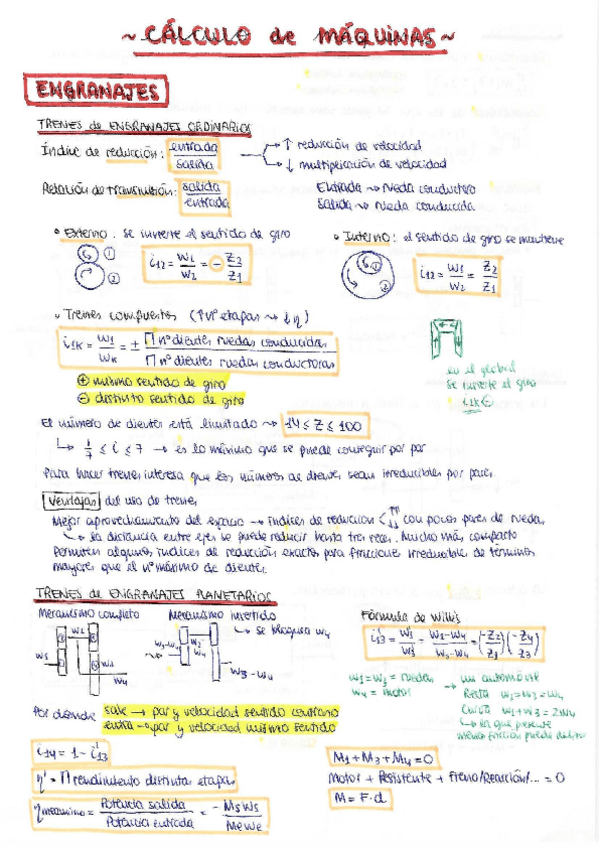 ~ CÁLCULO de MÁQUINAS ~
ENGRANAJES
TRENES de ENGRANAJES ORDINARIOS
Índice de reducción: entrada / salida
↑ reducción de velocidad
↓ multiplicación de velocidad
Relación de transmisión: salida / entrada
Entrada → rueda conductora
Salida → rueda conducida
• Externo: se invierte el sentido de giro
1 2
i12 = w1/w2 = - Z2/Z1
• Interno: el sentido de giro se mantiene
1 2
i12 = w1/w2 = Z2/Z1
• Trenes compuestos (↑nº etapas → ↓η)
i1K = w1/wK = ± Π nº dientes ruedas conducidas / Π nº dientes ruedas conductoras
+ mismo sentido de giro
- distinto sentido de giro
en el global
se invierte el giro
i1K -
El número de dientes está limitado → 14 ≤ Z ≤ 100
↳ 1/7 ≤ i ≤ 7 → es lo máximo que se puede conseguir por par
Para hacer trenes interesa que los números de dientes sean irreducibles por pares.
Ventajas del uso de trenes
Mejor aprovechamiento del espacio → índices de reducción con pocos pares de ruedas
↳ la distancia entre ejes se puede reducir hasta tres veces. Mucho más compacto
Permiten algunos índices de reducción exactos para fracciones irreducibles de términos
mayores que el nº máximo de dientes.
TRENES de ENGRANAJES PLANETARIOS
Mecanismo completo
Mecanismo invertido
↳ se bloquea w4
w1 w2 w4
w3-w4
Fórmula de Willis
i'13 = w'1/w'3 = w1-w4/w3-w4 = (-Z2/Z1)(-Z4/Z3)
w1=w3 = ruedas
w4 = motor
→ un automóvil
Recta w1=w3=w4
Curva w1+w3=2w4
↳ la que presente
menor fricción puede
Por dónde
sale → par y velocidad sentido contrario
entra → par y velocidad mismo sentido
i14 = 1 - i'13
η' = Π rendimiento distinta etapa
η mecanismo = Potencia salida / Potencia entrada = - Ms Ws / Me We
M1 + M3 + M4 = 0
Motor + Resistente + Freno/Reacción/... = 0
M = F·d